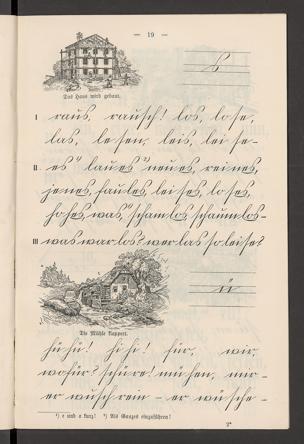 — 19 —
s
Das Haus wird gebaut.
I raus, rausch! los, lose,
las, lesen, leis, leise-
II es¹) laues¹) neues, reines,
jenes, faules leises, loses,
hohes, was,²) scham los, schaum los-
III was war los? wer las so leise?
ü
Die Mühle klappert.
hü hü! hi hi! für, wir,
wofür? schüre! mühen, mir-
er wusch rein - er wüsche-
¹) e und a kurz! ²) Als Ganzes einzuführen!
2*